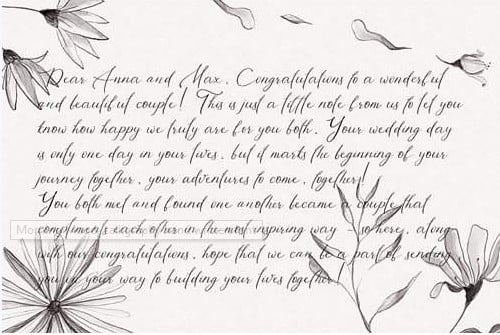 Dear Anna and Max, Congratulations to a wonderful
and beautiful couple! This is just a little note from us to let you
know how happy we truly are for you both. Your wedding day
is only one day in your lives, but it marks the beginning of your
journey together, your adventures to come, together!
You both met and found one another became a couple that
compliments each other in the most inspiring way - so here, along
with our congratulations, hope that we can be a part of sending
you on your way to building your lives together!